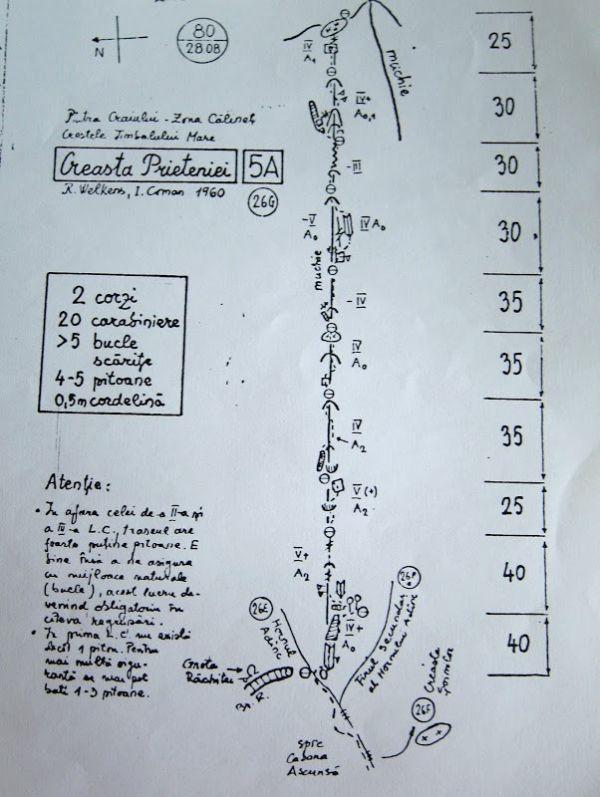 N
80
28.08
Piatra Craiului - Zona Călineț
Crestele Timbalului Mare
Creasta Prieteniei 5A
R. Welkens, I. Coman 1960
26G
2 corzi
20 carabiniere
>5 bucle
scărițe
4-5 pitoane
0,5m cordelină
Atenție:
• În afara celei de-a II-a și
a IV-a L.C., traseul are
foarte puține pitoane. E
bine însă a ne asigura
cu mijloace naturale
(bucle), acest lucru de-
venind obligatoriu în
cîteva regrupări.
• În prima L.C. nu există
decît 1 piton. Pentru
mai multă sigu-
ranță se mai pot
bate 1-3 pitoane.
muchie
IV
A₁
IV+
A₀,₁
-III
-V
A₀
IV A₀
muchie
-IV
IV
A₀
IV
A₂
V(+)
A₂
V+
A₂
IV+
A₀
25
30
30
30
35
35
35
25
40
40
26E
Hornul
Adînc
26P
Firul Secundar
al Hornului Adînc
Grota
Răchitei
Br. R.
26F
Creasta
spre
Cabana
Ascunsă